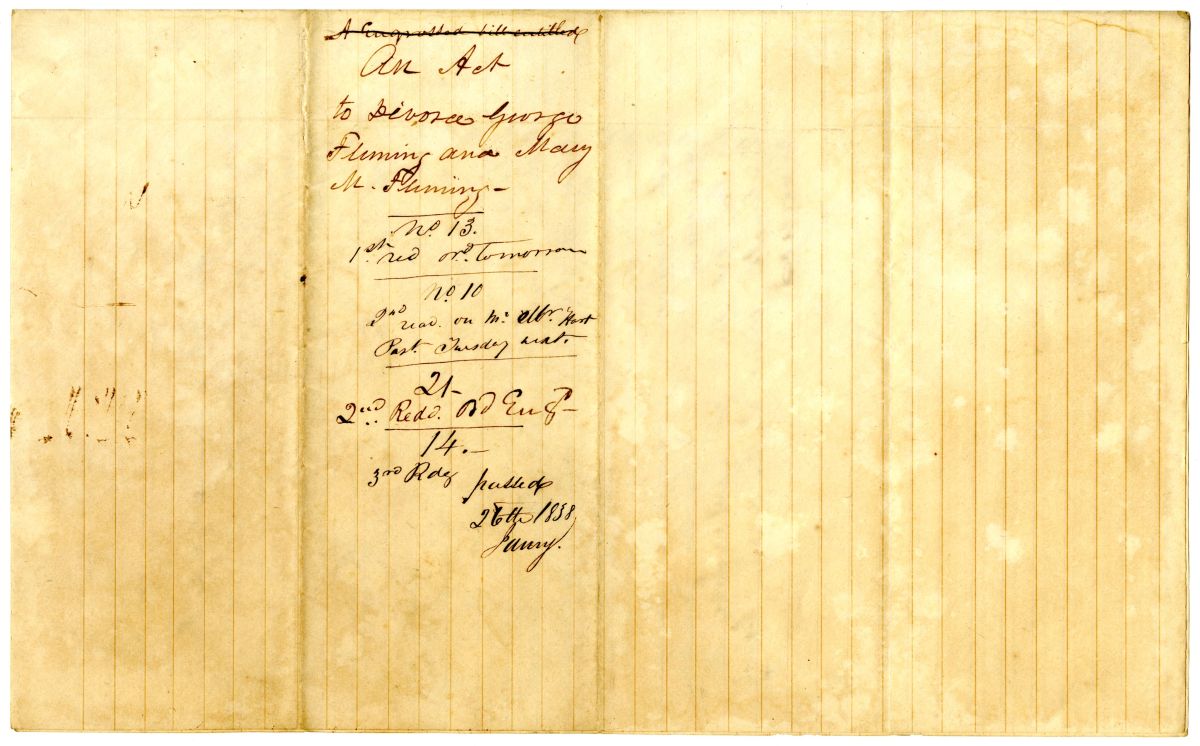 A Engrossed bill entitled
An Act
to Divorce George
Fleming and Mary
M. Fleming -
No. 13.
1st red ord. tomorrow
No. 10
2nd read. on Mo. Mr. Hart
Post. Tuesday next.
21-
2nd. Redd. Od Eng -
14. -
3rd Rdg passed
26th 1838
Jany.